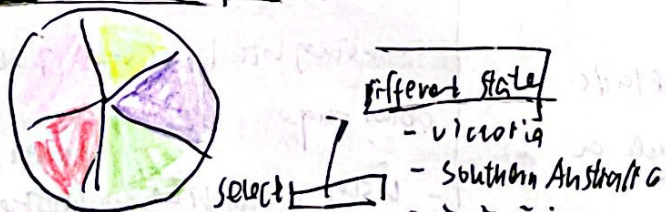 Different State
- victoria
- Southern Australia
select